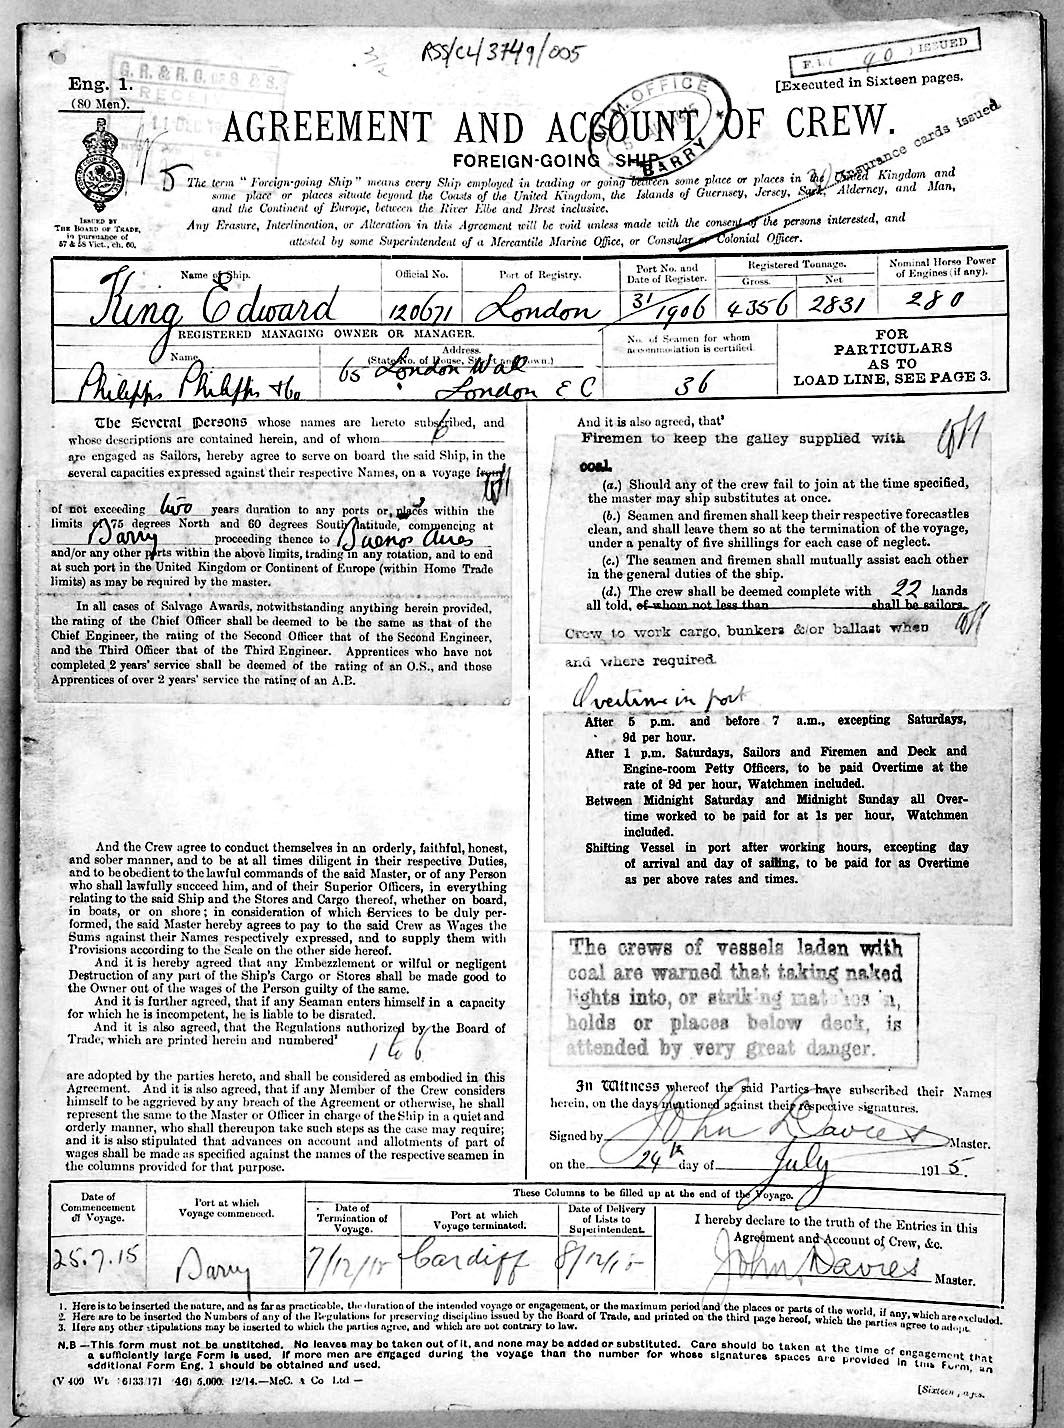 RSS/CL/3749/005
ISSUED
Eng. 1.
(80 Men).
G. R. & R. G. OF S. & S.
[Executed in Sixteen pages.
M.M. OFFICE
BARRY
AGREEMENT AND ACCOUNT OF CREW.
FOREIGN-GOING SHIP.
Insurance cards issued
5
The term "Foreign-going Ship" means every Ship employed in trading or going between some place or places in the United Kingdom and
some place or places situate beyond the Coasts of the United Kingdom, the Islands of Guernsey, Jersey, Sark, Alderney, and Man,
and the Continent of Europe, between the River Elbe and Brest inclusive.
Any Erasure, Interlineation, or Alteration in this Agreement will be void unless made with the consent of the persons interested, and
attested by some Superintendent of a Mercantile Marine Office, or Consular or Colonial Officer.
ISSUED BY
THE BOARD OF TRADE,
in pursuance of
57 & 58 Vict., ch. 60.
Name of Ship. Official No. Port of Registry. Port No. and Date of Register. Registered Tonnage. Gross. Net Nominal Horse Power of Engines (if any).
King Edward 120671 London 31/1906 4356 2831 280
REGISTERED MANAGING OWNER OR MANAGER.
Name Address. (State No. of House, Street and Town.)
No. of Seamen for whom accommodation is certified.
Philipps Philipps & Co 65 London Wall
London E C
36
FOR
PARTICULARS
AS TO
LOAD LINE, SEE PAGE 3.
The Several Persons whose names are hereto subscribed, and
whose descriptions are contained herein, and of whom 6
are engaged as Sailors, hereby agree to serve on board the said Ship, in the
several capacities expressed against their respective Names, on a voyage from
of not exceeding two years duration to any ports or places within the
limits of 75 degrees North and 60 degrees South latitude, commencing at
Barry proceeding thence to Buenos Aires
and/or any other ports within the above limits, trading in any rotation, and to end
at such port in the United Kingdom or Continent of Europe (within Home Trade
limits) as may be required by the master.
In all cases of Salvage Awards, notwithstanding anything herein provided,
the rating of the Chief Officer shall be deemed to be the same as that of the
Chief Engineer, the rating of the Second Officer that of the Second Engineer,
and the Third Officer that of the Third Engineer. Apprentices who have not
completed 2 years' service shall be deemed of the rating of an O.S., and those
Apprentices of over 2 years' service the rating of an A.B.
And the Crew agree to conduct themselves in an orderly, faithful, honest,
and sober manner, and to be at all times diligent in their respective Duties,
and to be obedient to the lawful commands of the said Master, or of any Person
who shall lawfully succeed him, and of their Superior Officers, in everything
relating to the said Ship and the Stores and Cargo thereof, whether on board,
in boats, or on shore; in consideration of which Services to be duly per-
formed, the said Master hereby agrees to pay to the said Crew as Wages the
Sums against their Names respectively expressed, and to supply them with
Provisions according to the Scale on the other side hereof.
And it is hereby agreed that any Embezzlement or wilful or negligent
Destruction of any part of the Ship's Cargo or Stores shall be made good to
the Owner out of the wages of the Person guilty of the same.
And it is further agreed, that if any Seaman enters himself in a capacity
for which he is incompetent, he is liable to be disrated.
And it is also agreed, that the Regulations authorized by the Board of
Trade, which are printed herein and numbered²
1 to 6
are adopted by the parties hereto, and shall be considered as embodied in this
Agreement. And it is also agreed, that if any Member of the Crew considers
himself to be aggrieved by any breach of the Agreement or otherwise, he shall
represent the same to the Master or Officer in charge of the Ship in a quiet and
orderly manner, who shall thereupon take such steps as the case may require;
and it is also stipulated that advances on account and allotments of part of
wages shall be made as specified against the names of the respective seamen in
the columns provided for that purpose.
And it is also agreed, that³
Firemen to keep the galley supplied with
coal.
(a.) Should any of the crew fail to join at the time specified,
the master may ship substitutes at once.
(b.) Seamen and firemen shall keep their respective forecastles
clean, and shall leave them so at the termination of the voyage,
under a penalty of five shillings for each case of neglect.
(c.) The seamen and firemen shall mutually assist each other
in the general duties of the ship.
(d.) The crew shall be deemed complete with 22 hands
all told, of whom not less than shall be sailors.
Crew to work cargo, bunkers &/or ballast when
and where required.
Overtime in port
After 5 p.m. and before 7 a.m., excepting Saturdays,
9d per hour.
After 1 p.m. Saturdays, Sailors and Firemen and Deck and
Engine-room Petty Officers, to be paid Overtime at the
rate of 9d per hour, Watchmen included.
Between Midnight Saturday and Midnight Sunday all Over-
time worked to be paid for at 1s per hour, Watchmen
included.
Shifting Vessel in port after working hours, excepting day
of arrival and day of sailing, to be paid for as Overtime
as per above rates and times.
The crews of vessels laden with
coal are warned that taking naked
lights into, or striking matches in,
holds or places below deck, is
attended by very great danger.
In Witness whereof the said Parties have subscribed their Names
herein, on the days mentioned against their respective signatures.
Signed by John Davies Master.
on the 24th day of July 1915.
These Columns to be filled up at the end of the Voyage.
Date of Commencement of Voyage. Port at which Voyage commenced. Date of Termination of Voyage. Port at which Voyage terminated. Date of Delivery of Lists to Superintendent.
25.7.15 Barry 7/12/15 Cardiff 8/12/15
I hereby declare to the truth of the Entries in this
Agreement and Account of Crew, &c.
John Davies Master.
1. Here is to be inserted the nature, and as far as practicable, the duration of the intended voyage or engagement, or the maximum period and the places or parts of the world, if any, which are excluded.
2. Here are to be inserted the Numbers of any of the Regulations for preserving discipline issued by the Board of Trade, and printed on the third page hereof, which the parties agree to adopt.
3. Here any other stipulations may be inserted to which the parties agree, and which are not contrary to law.
N.B—This form must not be unstitched. No leaves may be taken out of it, and none may be added or substituted. Care should be taken at the time of engagement that
a sufficiently large Form is used. If more men are engaged during the voyage than the number for whose signatures spaces are provided in this Form, an
additional Form Eng. 1 should be obtained and used.
(V 409 Wt 6133/171 46) 5,000. 12/14.—McC. & Co Ltd—
[Sixteen pages.